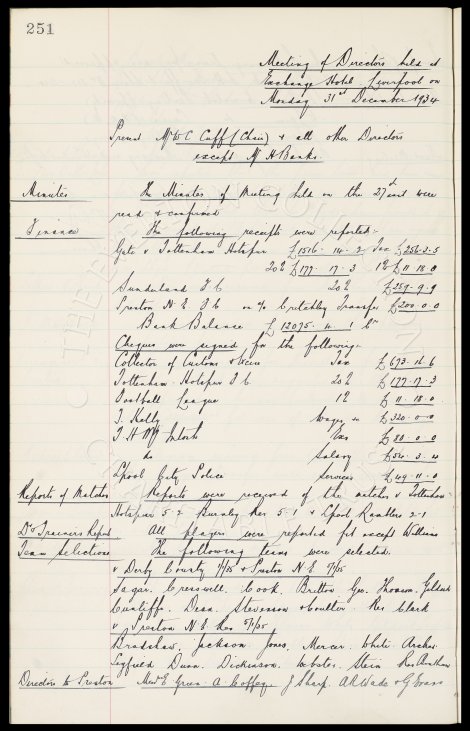 251
Meeting of Directors held at
Exchange Hotel Liverpool on
Monday 31st December 1934
Present Mr W C Cuff (Chair) & all other Directors
except Mr H Banks
Minutes The Minutes of Meeting held on the 27 inst were
read & confirmed
Finance The following receipts were reported:-
Gate v Tottenham Hotspur £1516. 14. 2 Tax £256. 3. 5
20% £177. 17. 3 1% £11. 18. 0
Sunderland F C 20% £259. 9. 9
Preston N E F C on a/c Critchley Transfer £200. 0. 0
Bank Balance £12075. 4. 1 Cr
Cheques were signed for the following:-
Collector of Customs & Excise Tax £673. 12. 6
Tottenham Hotspur F C 20% £177. 17. 3
Football League 1% £11. 18. 0
T. Kelly Wages £320. 0. 0
T. H. McIntosh £80. 0. 0
do Salary 3. 4
Lpool City Police Services £49. 11. 0
Reports of Matches Reports were received of the matches v Tottenham
Hotspur 5-2 Burnley Res 5-1 & Lpool Ramblers 2-1
Dr & Trainers Report All players were reported fit except Williams
Team Selections The following teams were selected.
v Derby County & Preston N. E.
Sagar. Cresswell. Cook. Britton. Gee. Thomson. Geldard
Cunliffe. Dean. Stevenson & Coulter. Res Clark
v Preston N. E. Res 5/1/35
Bradshaw. Jackson. Jones. Mercer. White. Archer.
Leyfield. Dunn. Dickinson. Webster. Stein
Directors to Preston Messrs E. Green. A. Coffey. J Sharp. A R Wade & G Evans